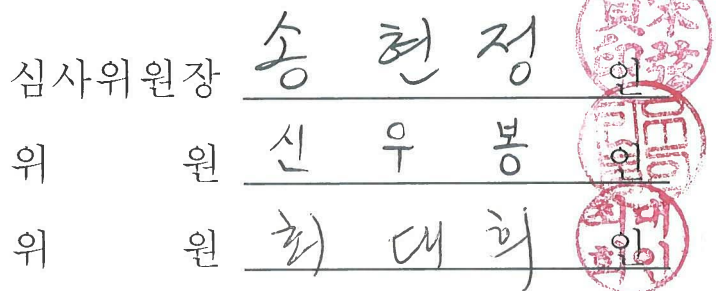 심사위원장 송 현 정 인
위 원 신 우 봉 인
위 원 최 대 희 인